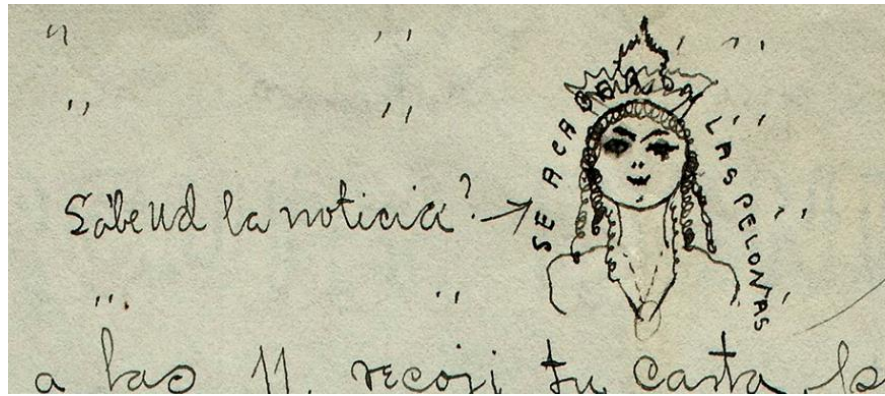 " " " "
" " "
Sábe Ud la noticia? →
SE ACABARON LAS PELONAS
" " "
a las 11, recoji tu carta, la